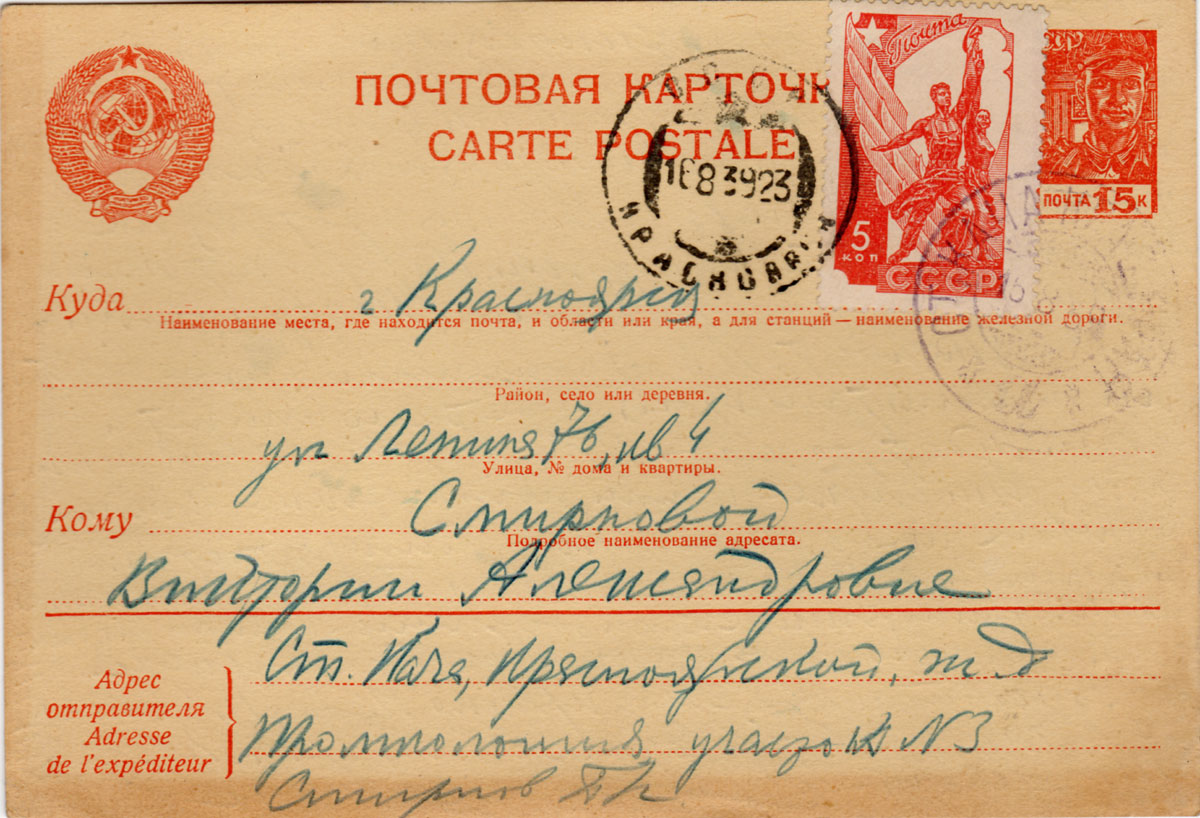 ПОЧТОВАЯ КАРТОЧК
CARTE POSTALE
Почта
5
КОП
СССР
СССР
ПОЧТА 15 К
16 8 39 23
КРАСНОЯРСК
Куда г Красноярск
Наименование места, где находится почта, и области или края, а для станций — наименование железной дороги.
Район, село или деревня.
ул Ленина 76, кв 4
Улица, № дома и квартиры.
Кому Смирновой
Подробное наименование адресата.
Виктории Александровне
Адрес
отправителя
Adresse
de l'expéditeur
Ст. Красноярской, ж. д
Промколония участок N3
Смирнов